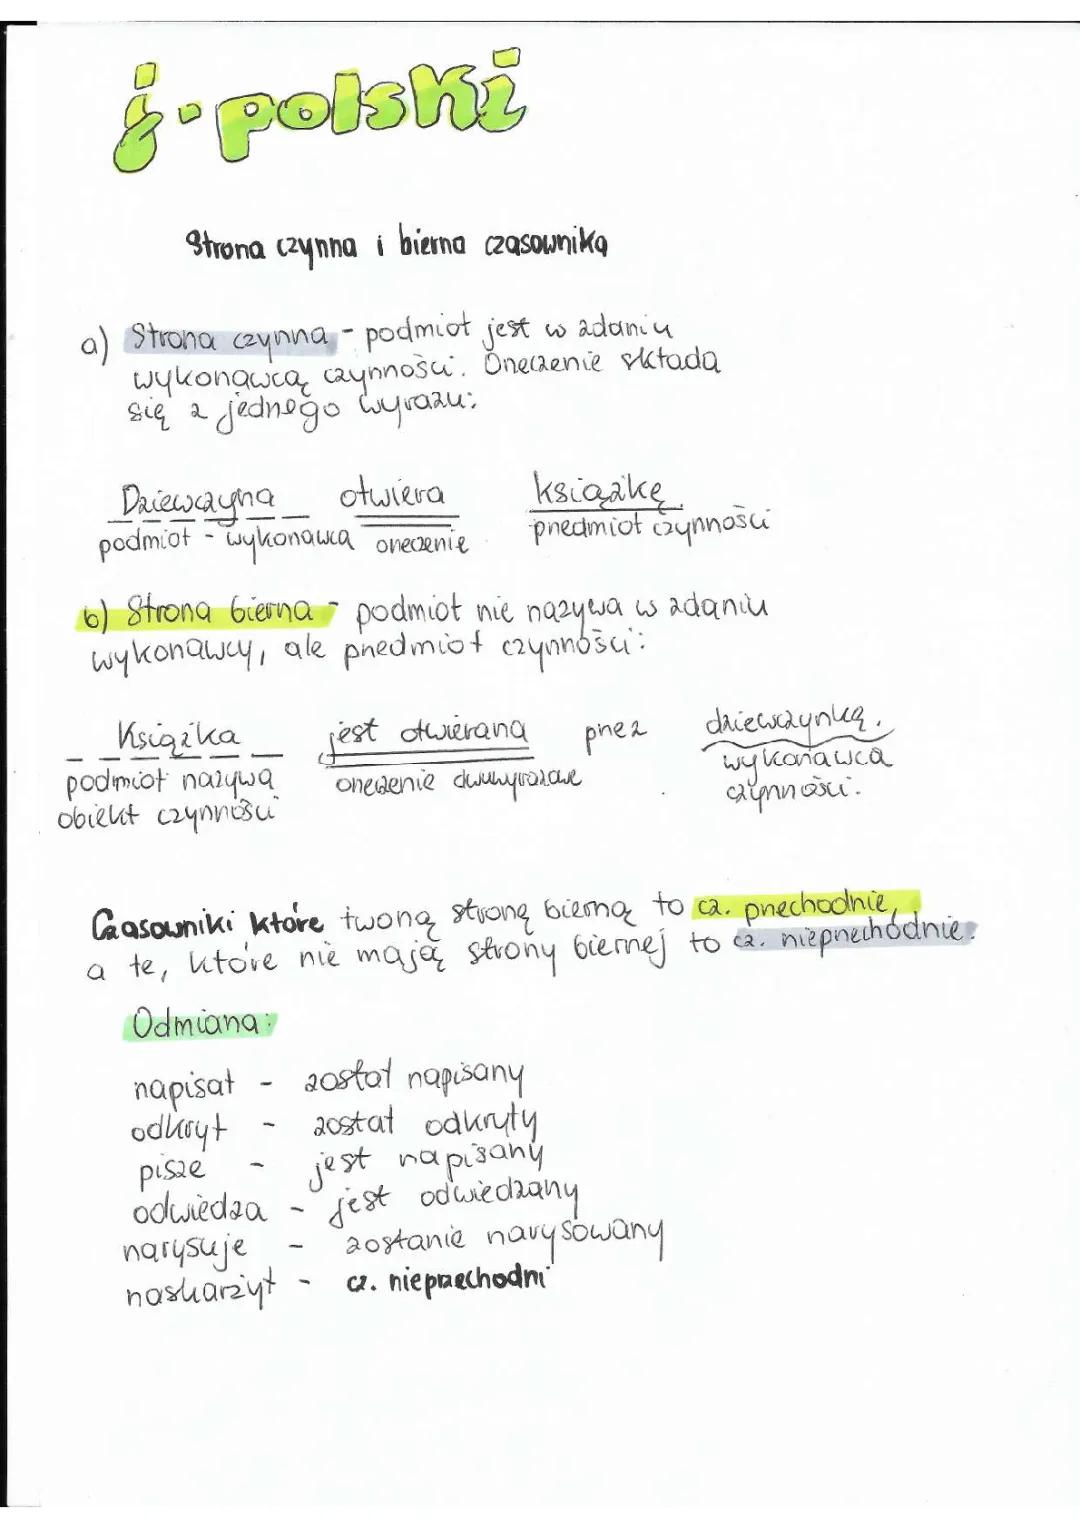 j. polski
Strona czynna i bierna czasownika
a) Strona czynna - podmiot jest w zdaniu
wykonawcą czynności. Orzeczenie składa
się z jednego wyrazu:
Dziewczyna otwiera książkę
podmiot - wykonawca orzeczenie przedmiot czynności
b) Strona bierna - podmiot nie nazywa w zdaniu
wykonawcy, ale przedmiot czynności:
Książka jest otwierana przez dziewczynkę.
podmiot nazywa orzeczenie dwuwyrazowe wykonawca
obiekt czynności czynności.
Czasowniki które tworzą stronę bierną to cz. przechodnie,
a te, które nie mają strony biernej to cz. nieprzechodnie.
Odmiana:
napisał - został napisany
odkrył - został odkryty
pisze - jest napisany
odwiedza - jest odwiedzany
narysuje - zostanie narysowany
naskarżył - cz. nieprzechodni